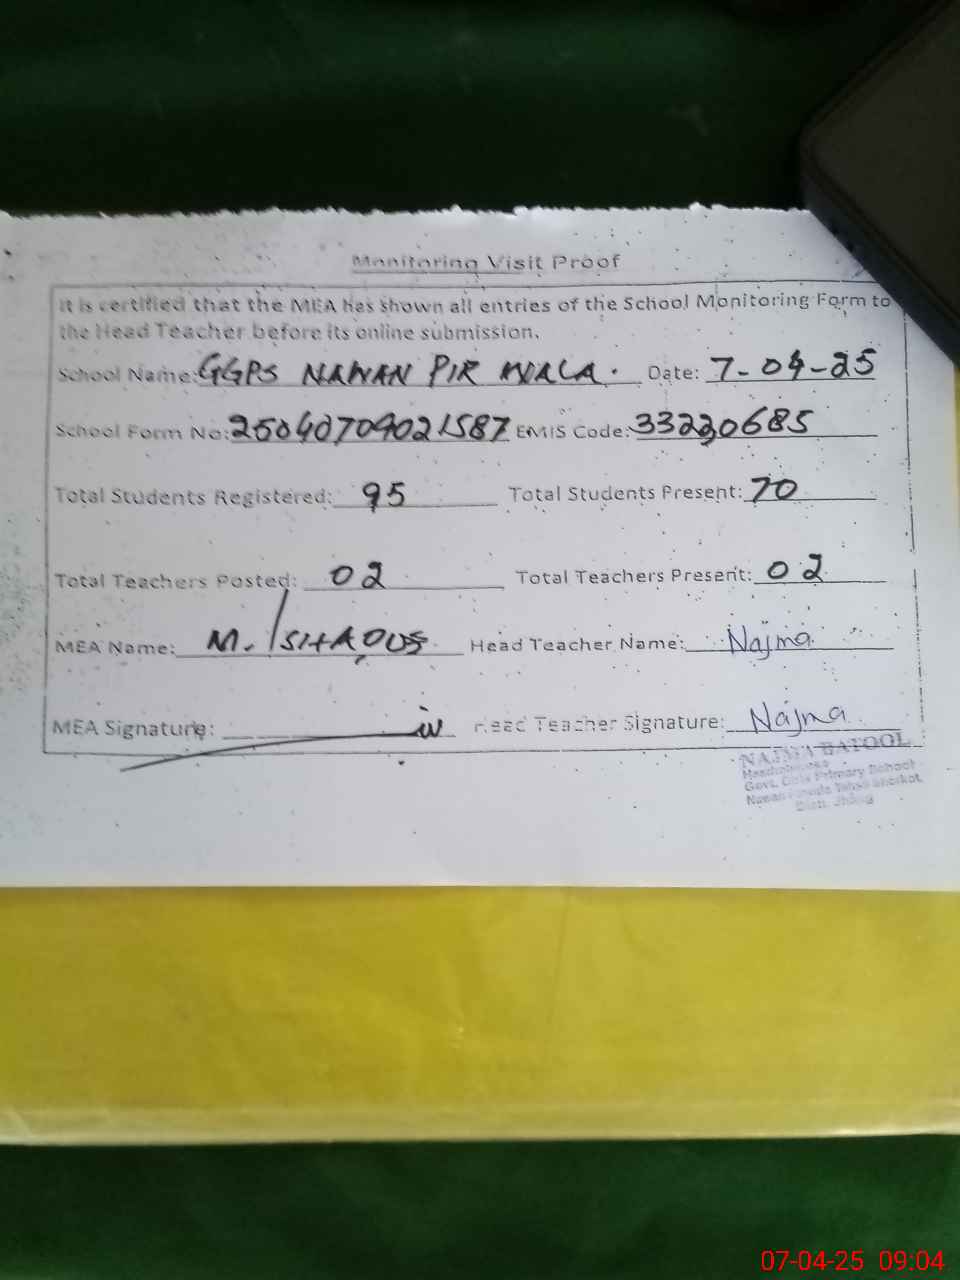 Monitoring Visit Proof
It is certified that the MEA has shown all entries of the School Monitoring Form to
the Head Teacher before its online submission.
School Name: GGPS NAWAN PIR WALA. Date: 7-04-25
School Form No: 25040709021587 EMIS Code: 33230685
Total Students Registered: 95 Total Students Present: 70
Total Teachers Posted: 02 Total Teachers Present: 02
MEA Name: M. Head Teacher Name: Najma
MEA Signature: Head Teacher Signature: Najma
NAJMA BATOOL
Govt. Girls Primary School
Distt. Jhang
07-04-25 09:04